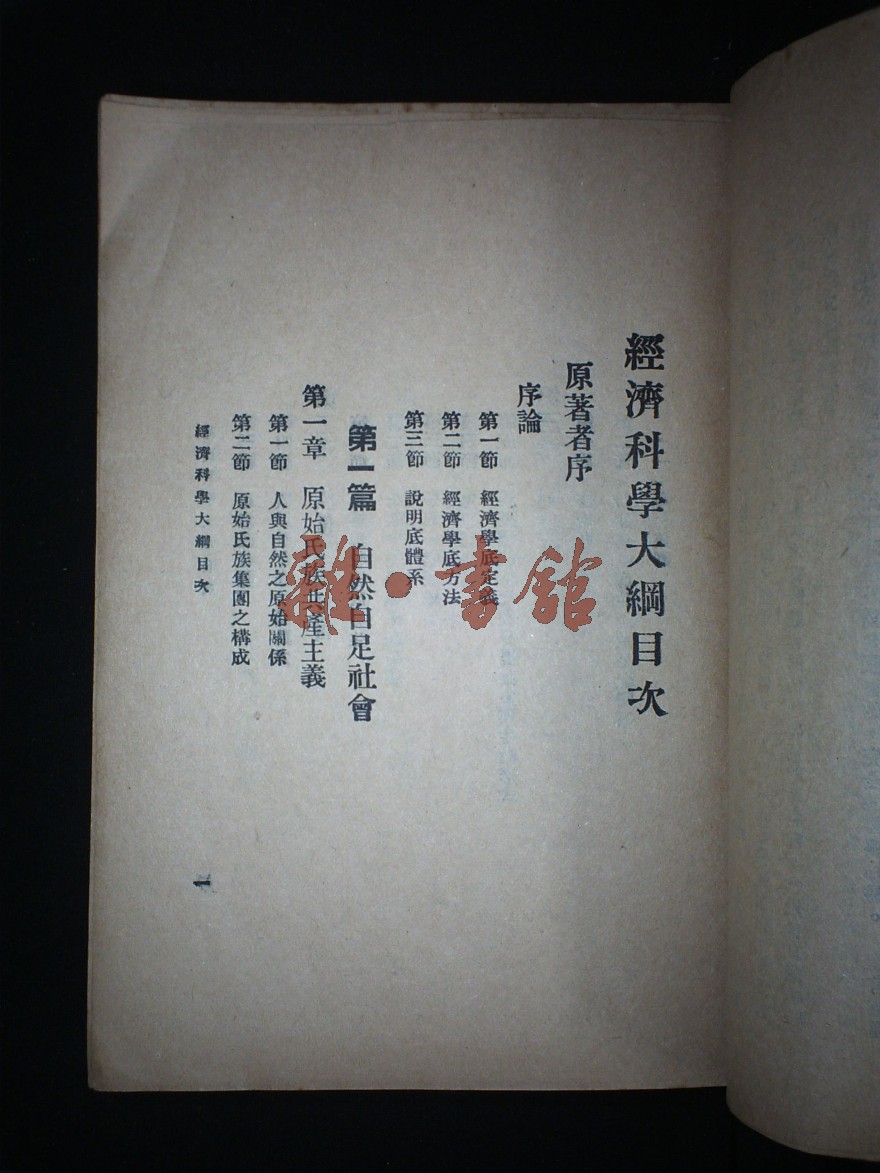 經濟科學大綱目次
原著者序
序論
第一節 經濟學底定義
第二節 經濟學底方法
第三節 說明底體系
第一篇 自然自足社會
第一章 原始氏族共產主義
第一節 人與自然之原始關係
第二節 原始氏族集團之構成
經濟科學大綱目次
一
雜·書館